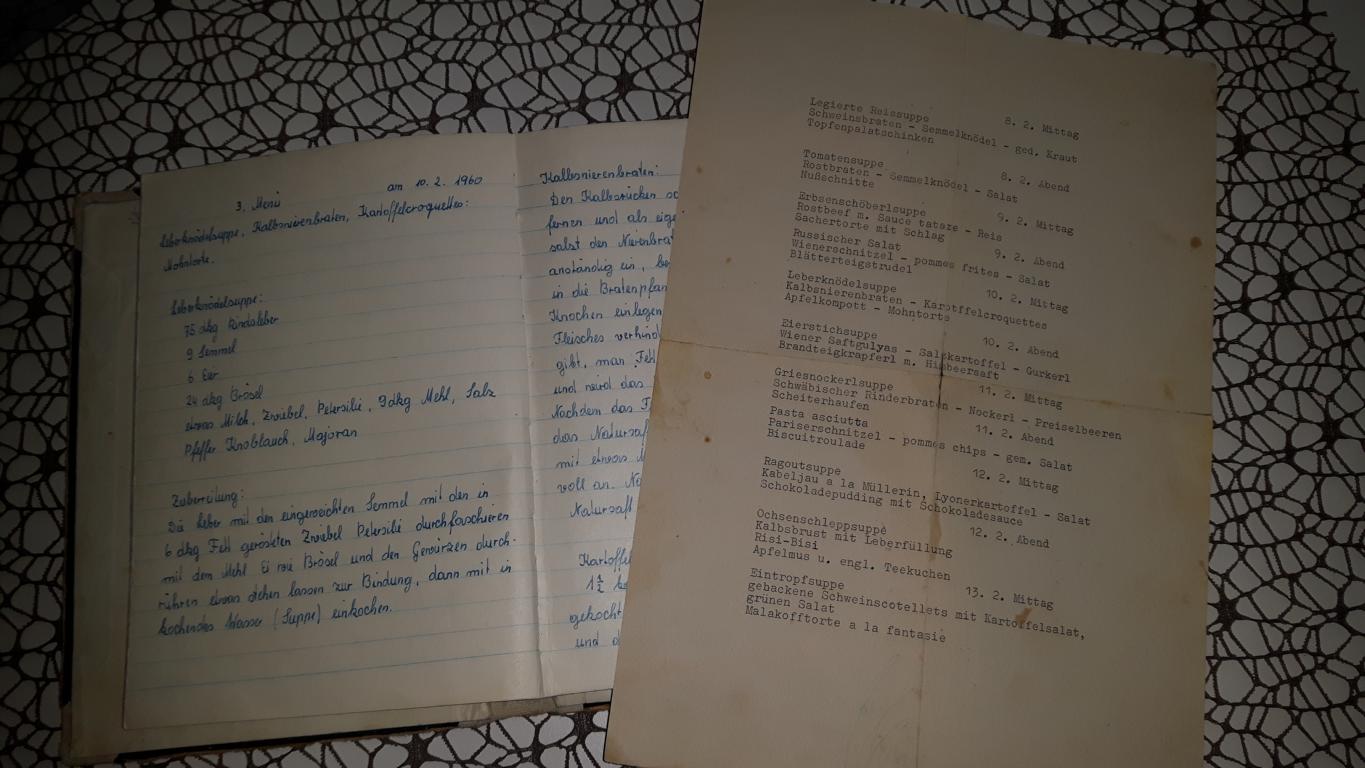 am 10. 2. 1960
3. Menü
Leberknödelsuppe, Kalbsnierenbraten, Kartoffelcroquettes:
Mohntorte.
Leberknödelsuppe:
75 dkg Rindsleber
9 Semmel
6 Eier
24 dkg Brösel
etwas Milch, Zwiebel, Petersilie, 9dkg Mehl, Salz
Pfeffer Knoblauch, Majoran
Zubereitung:
Die Leber mit den eingeweichten Semmel mit den in
6 dkg Fett gerösteten Zwiebel Petersilie durchfaschieren
mit dem Mehl Ei wie Brösel und den Gewürzen durch-
rühren etwas stehen lassen zur Bindung, dann mit in
kochendes Wasser (Suppe) einkochen.
Kalbsnierenbraten:
Den Kalbsrücken
fernen und als
salzt den
anständig ein,
in die
Knochen einlegen
Fleisches
gibt, man Fett
und wird das
Nachdem das
das
mit etwas
voll an.
Natursaft
1½
gekocht
und
Legierte Reissuppe 8. 2. Mittag
Schweinsbraten - Semmelknödel - ged. Kraut
Topfenpalatschinken
Tomatensuppe 8. 2. Abend
Rostbraten - Semmelknödel - Salat
Nußschnitte
Erbsenschöberlsuppe 9. 2. Mittag
Rostbeef m. Sauce tatare - Reis
Sachertorte mit Schlag
Russischer Salat 9. 2. Abend
Wienerschnitzel - pommes frites - Salat
Blätterteigstrudel
Leberknödelsuppe 10. 2. Mittag
Kalbsnierenbraten - Karotffelcroquettes
Apfelkompott - Mohntorte
Eierstichsuppe 10. 2. Abend
Wiener Saftgulyas - Salzkartoffel - Gurkerl
Brandteigkrapferl m. Himbeersaft
Griesnockerlsuppe 11. 2. Mittag
Schwäbischer Rinderbraten - Nockerl - Preiselbeeren
Scheiterhaufen
Pasta asciutta 11. 2. Abend
Pariserschnitzel - pommes chips - gem. Salat
Biscuitroulade
Ragoutsuppe 12. 2. Mittag
Kabeljau a la Müllerin, Lyonerkartoffel - Salat
Schokoladepudding mit Schokoladesauce
Ochsenschleppsuppe 12. 2. Abend
Kalbsbrust mit Leberfüllung
Risi-Bisi
Apfelmus u. engl. Teekuchen
Eintropfsuppe 13. 2. Mittag
gebackene Schweinscotellets mit Kartoffelsalat,
grünen Salat
Malakofftorte a la fantasie